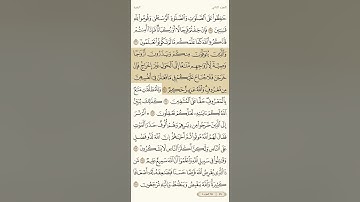 الجزء الثاني البقرة
حَٰفِظُوا۟ عَلَى ٱلصَّلَوَٰتِ وَٱلصَّلَوٰةِ ٱلْوُسْطَىٰ وَقُومُوا۟ لِلَّهِ
قَٰنِتِينَ فَإِنْ خِفْتُمْ فَرِجَالًا أَوْ رُكْبَانًا فَإِذَآ أَمِنتُمْ
فَٱذْكُرُوا۟ ٱللَّهَ كَمَا عَلَّمَكُم مَّا لَمْ تَكُونُوا۟ تَعْلَمُونَ
وَٱلَّذِينَ يُتَوَفَّوْنَ مِنكُمْ وَيَذَرُونَ أَزْوَٰجًا
وَصِيَّةً لِّأَزْوَٰجِهِم مَّتَٰعًا إِلَى ٱلْحَوْلِ غَيْرَ إِخْرَاجٍ فَإِنْ
خَرَجْنَ فَلَا جُنَاحَ عَلَيْكُمْ فِى مَا فَعَلْنَ فِىٓ أَنفُسِهِنَّ
مِن مَّعْرُوفٍ وَٱللَّهُ عَزِيزٌ حَكِيمٌ وَلِلْمُطَلَّقَٰتِ مَتَٰعٌۢ
بِٱلْمَعْرُوفِ حَقًّا عَلَى ٱلْمُتَّقِينَ كَذَٰلِكَ يُبَيِّنُ
ٱللَّهُ لَكُمْ ءَايَٰتِهِۦ لَعَلَّكُمْ تَعْقِلُونَ أَلَمْ تَرَ
إِلَى ٱلَّذِينَ خَرَجُوا۟ مِن دِيَٰرِهِمْ وَهُمْ أُلُوفٌ حَذَرَ ٱلْمَوْتِ
فَقَالَ لَهُمُ ٱللَّهُ مُوتُوا۟ ثُمَّ أَحْيَٰهُمْ إِنَّ ٱللَّهَ لَذُو فَضْلٍ
عَلَى ٱلنَّاسِ وَلَٰكِنَّ أَكْثَرَ ٱلنَّاسِ لَا يَشْكُرُونَ
وَقَٰتِلُوا۟ فِى سَبِيلِ ٱللَّهِ وَٱعْلَمُوٓا۟ أَنَّ ٱللَّهَ سَمِيعٌ عَلِيمٌ
مَّن ذَا ٱلَّذِى يُقْرِضُ ٱللَّهَ قَرْضًا حَسَنًا فَيُضَٰعِفَهُۥ لَهُۥٓ أَضْعَافًا
كَثِيرَةً وَٱللَّهُ يَقْبِضُ وَيَبْصُۜطُ وَإِلَيْهِ تُرْجَعُونَ